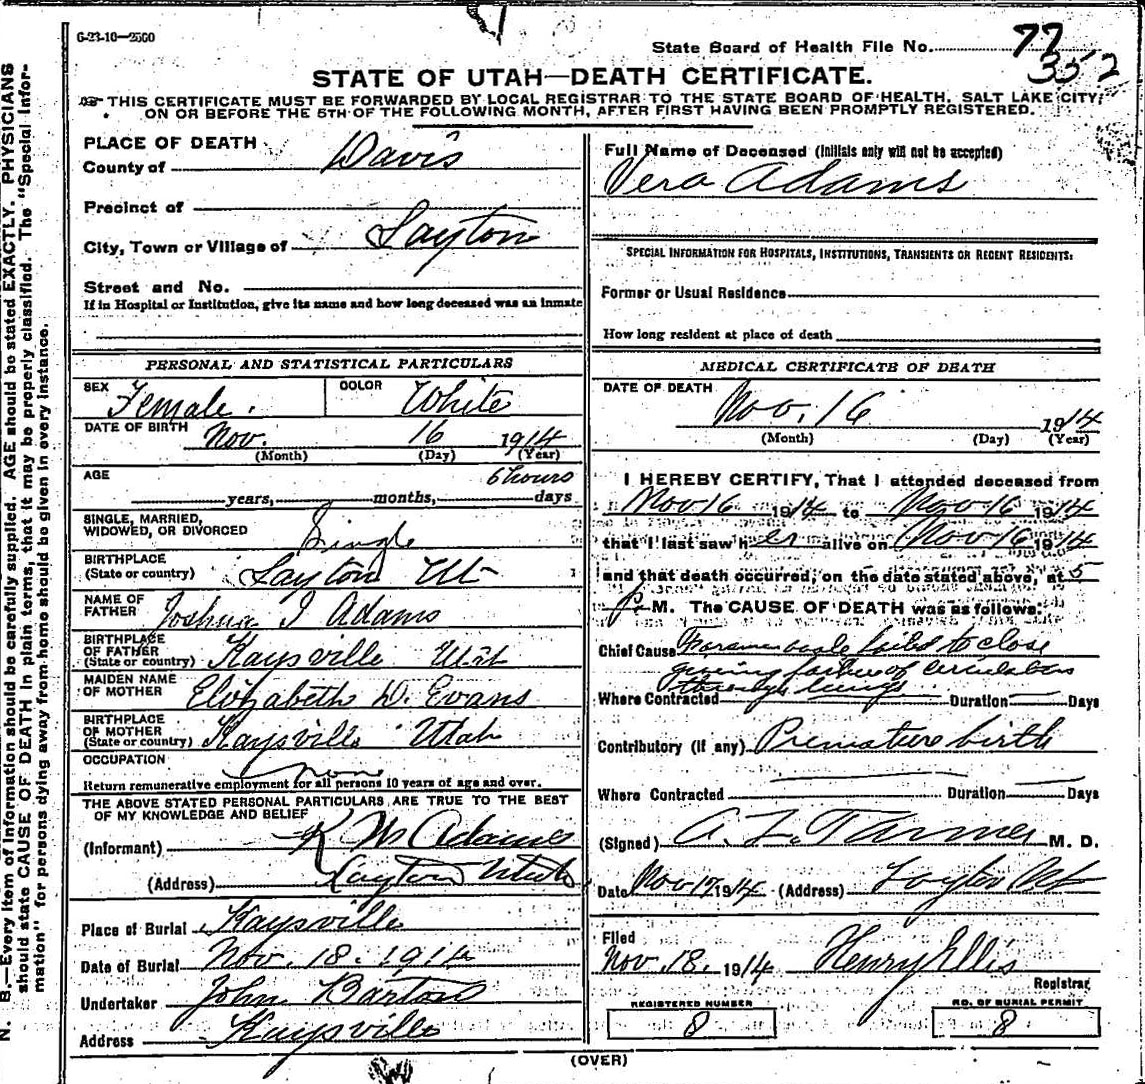 6-23-10—2560
State Board of Health File No. 77
352
STATE OF UTAH—DEATH CERTIFICATE.
THIS CERTIFICATE MUST BE FORWARDED BY LOCAL REGISTRAR TO THE STATE BOARD OF HEALTH, SALT LAKE CITY,
ON OR BEFORE THE 5TH OF THE FOLLOWING MONTH, AFTER FIRST HAVING BEEN PROMPTLY REGISTERED.
N. B.—Every item of information should be carefully supplied. AGE should be stated EXACTLY. PHYSICIANS
should state CAUSE OF DEATH in plain terms, that it may be properly classified. The "Special Infor-
mation" for persons dying away from home should be given in every instance.
PLACE OF DEATH
County of Davis
Precinct of
City, Town or Village of Layton
Street and No.
If in Hospital or Institution, give its name and how long deceased was an inmate
PERSONAL AND STATISTICAL PARTICULARS
SEX Female. COLOR White
DATE OF BIRTH Nov. 16 1914
(Month) (Day) (Year)
AGE 6 hours
years, months, days
SINGLE, MARRIED,
WIDOWED, OR DIVORCED Single
BIRTHPLACE
(State or country) Layton Ut
NAME OF
FATHER Joshua I Adams
BIRTHPLACE
OF FATHER
(State or country) Kaysville Utah
MAIDEN NAME
OF MOTHER Elizabeth D. Evans
BIRTHPLACE
OF MOTHER
(State or country) Kaysville Utah
OCCUPATION none
Return remunerative employment for all persons 10 years of age and over.
THE ABOVE STATED PERSONAL PARTICULARS ARE TRUE TO THE BEST
OF MY KNOWLEDGE AND BELIEF
(Informant) Adams
(Address) Layton Utah
Place of Burial Kaysville
Date of Burial Nov. 18. 1914
Undertaker John Barton
Address Kaysville
Full Name of Deceased (Initials only will not be accepted)
Vera Adams
SPECIAL INFORMATION FOR HOSPITALS, INSTITUTIONS, TRANSIENTS OR RECENT RESIDENTS:
Former or Usual Residence
How long resident at place of death
MEDICAL CERTIFICATE OF DEATH
DATE OF DEATH Nov. 16 1914
(Month) (Day) (Year)
I HEREBY CERTIFY, That I attended deceased from
Nov 16 1914 to Nov 16 1914
that I last saw her alive on Nov 16 1914
and that death occurred, on the date stated above, at 5
P. M. The CAUSE OF DEATH was as follows:
Chief Cause fails to close
giving failure of circulation
through lungs
Where Contracted Duration Days
Contributory (if any) Premature birth
Where Contracted Duration Days
(Signed) A. Z. Tanner M. D.
Date Nov 17 1914 (Address) Layton Ut
Filed
Nov. 18. 1914 Henry Ellis
Registrar
REGISTERED NUMBER NO. OF BURIAL PERMIT
8 8
(OVER)